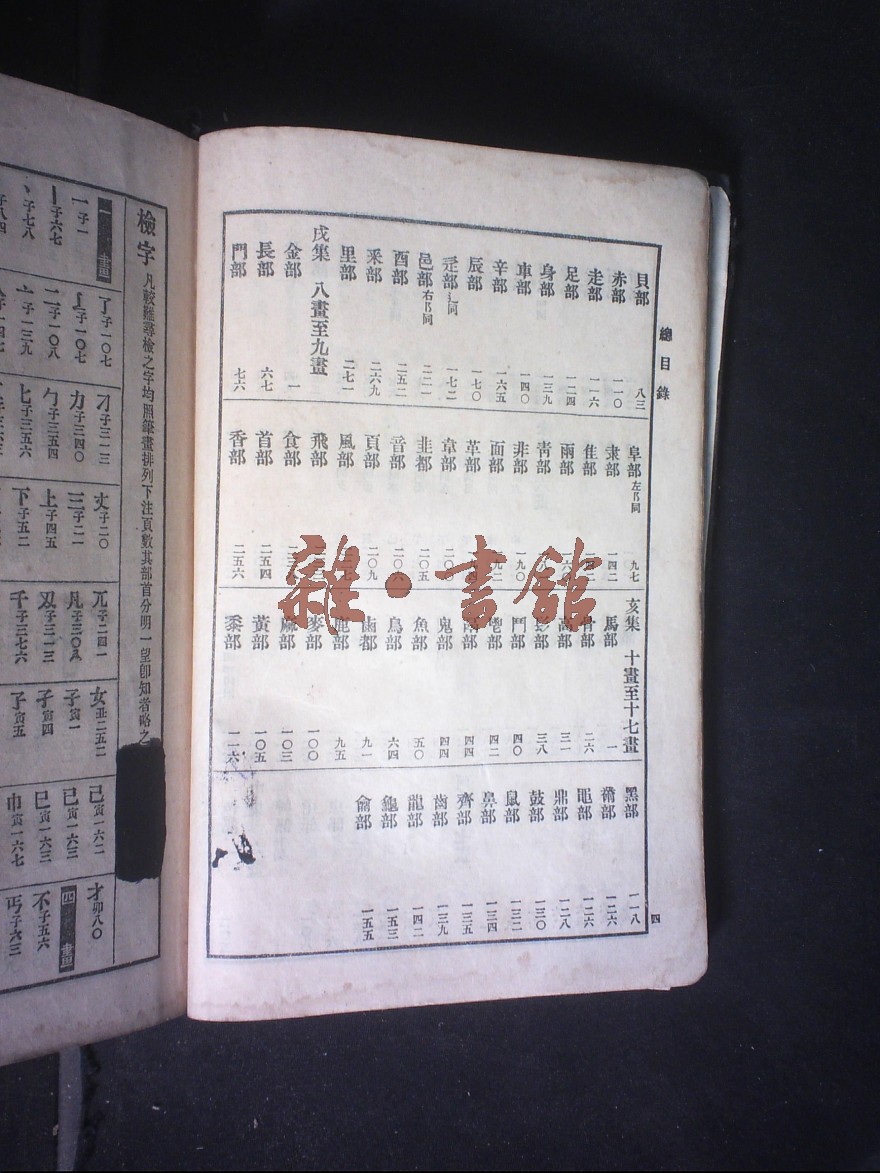 總目錄
貝部 八三
赤部 一一〇
走部 一一六
足部 一二四
身部 一三九
車部 一四〇
辛部 一六五
辰部 一七〇
辵部辶同 一七二
邑部右阝同 二二一
酉部 二五二
釆部 二六九
里部 二七一
戌集 八畫至九畫
金部 一
長部 六七
門部 七六
阜部左阝同 九七
隶部 一四二
隹部
雨部
靑部
非部 一九〇
面部
革部
韋部
韭部 二〇五
音部 二〇六
頁部 二〇九
風部
飛部
食部
首部 二五四
香部 二五六
亥集 十畫至十七畫
馬部 一
骨部 二六
高部 三一
髟部 三八
鬥部 四〇
鬯部 四二
鬲部 四四
鬼部 四四
魚部 五〇
鳥部 六四
鹵部 九一
鹿部 九五
麥部 一〇〇
麻部 一〇三
黃部 一〇五
黍部 一一六
黑部 一一八
黹部 一二六
黽部 一二六
鼎部 一二八
鼓部 一三〇
鼠部 一三二
鼻部 一三四
齊部 一三五
齒部 一三九
龍部 一四二
龜部 一五三
龠部 一五五
四
檢字 凡較難尋檢之字均照筆畫排列下注頁數其部首分明一望卽知者略之
畫
一子一
丨子六七
丶子七八
了子一〇七
亅子一〇七
二子一〇八
亠子一三九
刁子三一三
力子三四〇
勹子三五四
匕子三五六
丈子二〇
三子二一
上子四五
下子五二
兀子二四一
凡子三〇八
刄子三一三
千子三七六
女丑二五二
子寅一
孑寅四
孓寅五
己寅一六二
已寅一六三
巳寅一六三
巾寅一六七
才卯八〇
四畫
不子五六
丐子六三
雜·書館